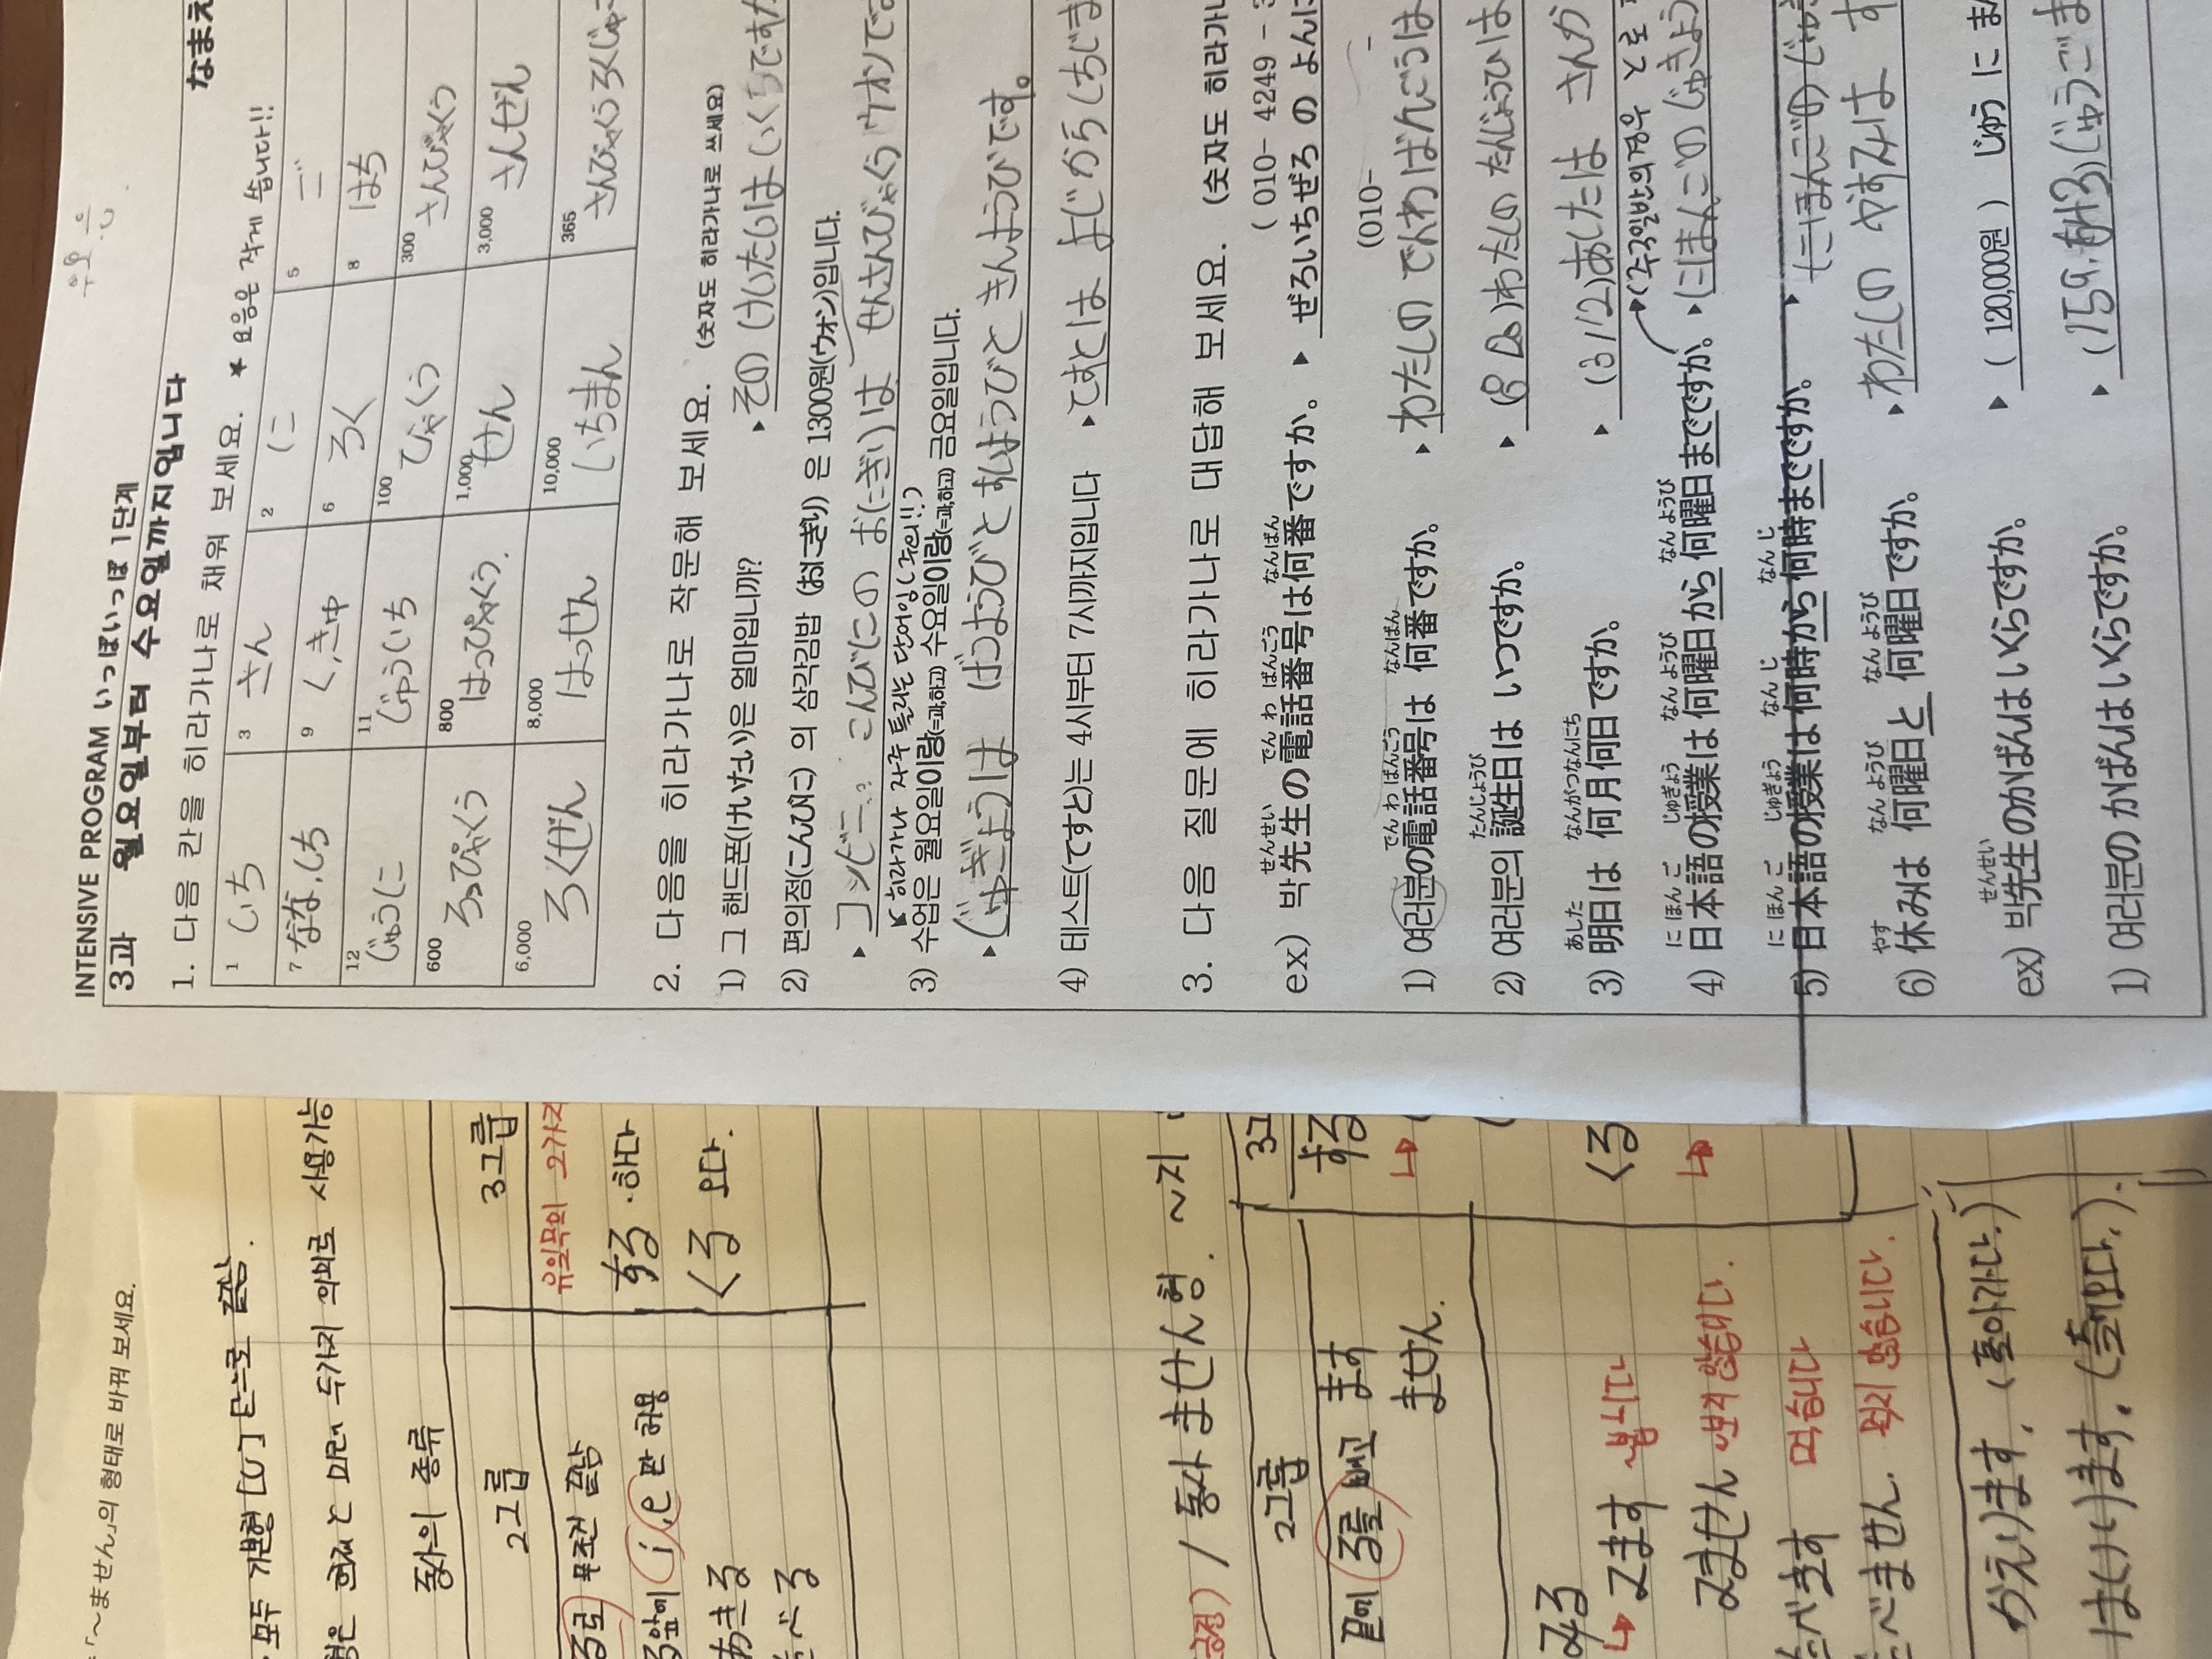 INTENSIVE PROGRAM いっぽいっぽ 1단계
3과 월요일부터 수요일까지입니다
なまえ
1. 다음 칸을 히라가나로 채워 보세요. * 요음은 작게 씁니다!!
1 いち 3 さん 2 に 5 ご
7 なな,しち 9 く,きゅ 6 ろく 8 はち
12 じゅうに 11 じゅういち 100 ひゃく 300 さんびゃく
600 ろっぴゃく 800 はっぴゃく. 1,000 せん 3,000 さんぜん
6,000 ろくせん 8,000 はっせん 10,000 いちまん 365 さんびゃくろくじゅ
2. 다음을 히라가나로 작문해 보세요. (숫자도 히라가나로 쓰세요)
1) 그 핸드폰(けいたい)은 얼마입니까? ▸ その けいたいは いくらですか
2) 편의점(こんびに) 의 삼각김밥 (おにぎり) 은 1300원(ウォン)입니다.
▸ コンビニ.. こんびにの おにぎりは せんさんびゃくウォンです
히라가나 자주 틀리는 단어임(주의!!)
3) 수업은 월요일이랑(=과,하고) 수요일이랑(=과,하고) 금요일입니다.
▸ じゅぎょうは げつようびと すいようびと きんようびです。
4) 테스트(てすと)는 4시부터 7시까지입니다 ▸ てすとは よじから しちじま
3. 다음 질문에 히라가나로 대답해 보세요. (숫자도 히라가나
ex) 박先生の電話番号は何番ですか。 ▸ ( 010- 4249 - 3
せんせい でんわ ばんごう なんばん
ぜろいちぜろ の よんに
でんわ ばんごう なんばん
(010- -
1) 여러분の電話番号は 何番ですか。 ▸ わたしの でんわばんごうは
たんじょうび
2) 여러분의 誕生日は いつですか。 ▸ わたしの たんじょうびは
あした なんがつなんにち
3) 明日は 何月何日ですか。 ▸ あしたは さんが
にほんご じゅぎょう なんようび なんようび
4) 日本語の授業は何曜日から何曜日までですか。 ▸ にほんごの じゅぎょう
にほんご じゅぎょう なんじ なんじ
5) 日本語の授業は何時から何時までですか。 ▸ にほんごの じゅ
やす なんようび なんようび
6) 休みは 何曜日と何曜日ですか。 ▸ わたしの やすみは す
せんせい
ex) 박先生のかばんはいくらですか。 ▸ ( 120,000원 ) じゅう に まん
1) 여러분の かばんはいくらですか。 ▸ じゅうごま
「~ません」의 형태로 바꿔 보세요.
모두 기본형 [U] 단으로 끝남.
형은 현재 と 미래 두가지 의미로 사용가능
동사의 종류
2그룹 3그룹
る로 무조건 끝남 유일무의 2가지
る앞에 i,e 만 허용 する ·하다
おきる くる 오다.
たべる
긍정) / 동사 ません형. ~지
2그룹
끝에 る를 빼고 ます
ません.
する
みる
↳ みます 봅니다
みません 보지 않습니다.
たべます 먹습니다
たべません 먹지 않습니다.
くる
かえります. (돌아가다.)
はいります. (들어오다.).